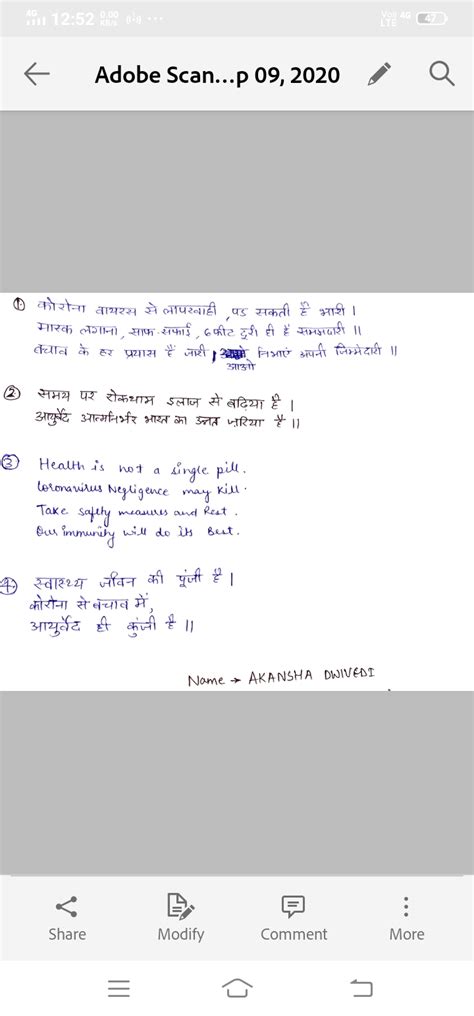 4G 12:52 0.00 KB/s ...
Vo) 4G LTE 47
Adobe Scan...p 09, 2020
① कोरोना वायरस से लापरवाही , पड़ सकती है भारी ।
मास्क लगाना, साफ-सफाई, 6 फीट दूरी ही है समझदारी ॥
बचाव के हर प्रयास हैं जारी, निभाएं अपनी जिम्मेदारी ॥
आओ
② समय पर रोकथाम इलाज से बढ़िया है ।
आयुर्वेद आत्मनिर्भर भारत का उन्नत जरिया है ॥
③ Health is not a single pill.
Coronavirus Negligence may kill.
Take safety measures and Rest.
Our immunity will do its Best.
④ स्वास्थ्य जीवन की पूंजी है ।
कोरोना से बचाव में,
आयुर्वेद ही कुंजी है ॥
Name → AKANSHA DWIVEDI
Share Modify Comment More